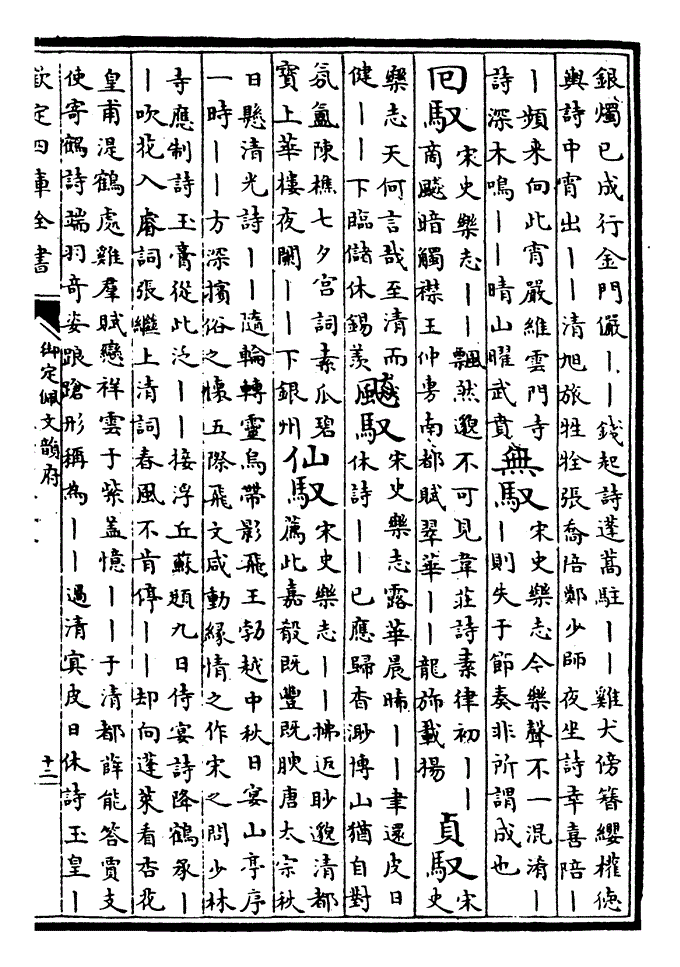 銀燭已成行金門儼丨丨錢起詩蓬蒿駐丨丨雞犬傍簪纓權德
輿詩中宵出丨丨清旭旅牲牷張喬陪鄭少師夜坐詩幸喜陪丨
丨頻来向此宵嚴維雲門寺
詩深木鳴丨丨晴山曜武賁
無馭
宋史樂志今樂聲不一混淆丨
丨則失于節奏非所謂成也
回馭
宋史樂志丨丨飄然邈不可見韋莊詩素律初丨丨
商飈暗觸襟王仲旉南都賦翠華丨丨龍旂載揚
貞馭
宋
史
樂志天何言哉至清而丨
健丨丨下臨儲休錫羡
飈馭
宋史樂志露華晨晞丨丨聿還皮日
休詩丨丨已應歸杳渺博山猶自對
氛氲陳樵七夕宫詞素瓜碧
寶上華樓夜闌丨丨下銀州
仙馭
宋史樂志丨丨拂近眇邈清都
薦此嘉殽既豐既腆唐太宗秋
日懸清光詩丨丨隨輪轉靈烏帶影飛王勃越中秋日宴山亭序
一時丨丨方深擯俗之懷五際飛文咸動緣情之作宋之問少林
寺應制詩玉膏從此泛丨丨接浮丘蘇頲九日侍宴詩降鶴承丨
丨吹花入睿詞張繼上清詞春風不肯停丨丨却向蓬萊看杏花
皇甫湜鶴處雞羣賦戀祥雲于紫蓋憶丨丨于清都薛能答賈支
使寄鶴詩端羽奇姿踉蹌形稱為丨丨過清冥皮日休詩玉皇丨
欽定四庫全書
御定佩文韻府
十二